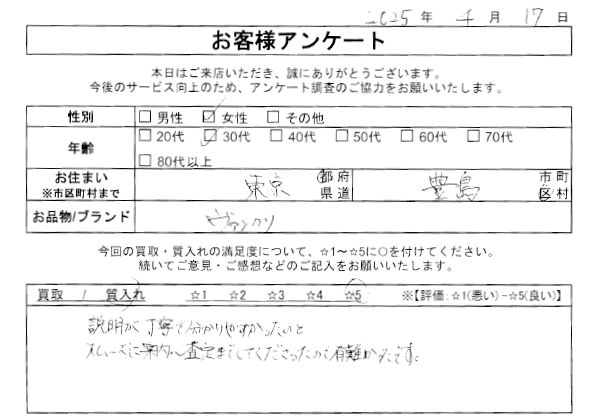 2025年 4月 17日
お客様アンケート
本日はご来店いただき、誠にありがとうございます。
今後のサービス向上のため、アンケート調査のご協力をお願いいたします。
性別 □男性 ☑女性 □その他
年齢 □20代 ☑30代 □40代 □50代 □60代 □70代
□80代以上
お住まい
※市区町村まで 東京 都府県道 豊島 市町区村
お品物/ブランド ヴァンクリ
今回の買取・質入れの満足度について、☆1～☆5に○を付けてください。
続いてご意見・ご感想などのご記入をお願いいたします。
買取 / 質入れ ☆1 ☆2 ☆3 ☆4 ☆5 ※【評価:☆1(悪い)-☆5(良い)】
説明が丁寧で分かりやすかったのと
スムーズに案内～査定までしてくださったので有難かったです。